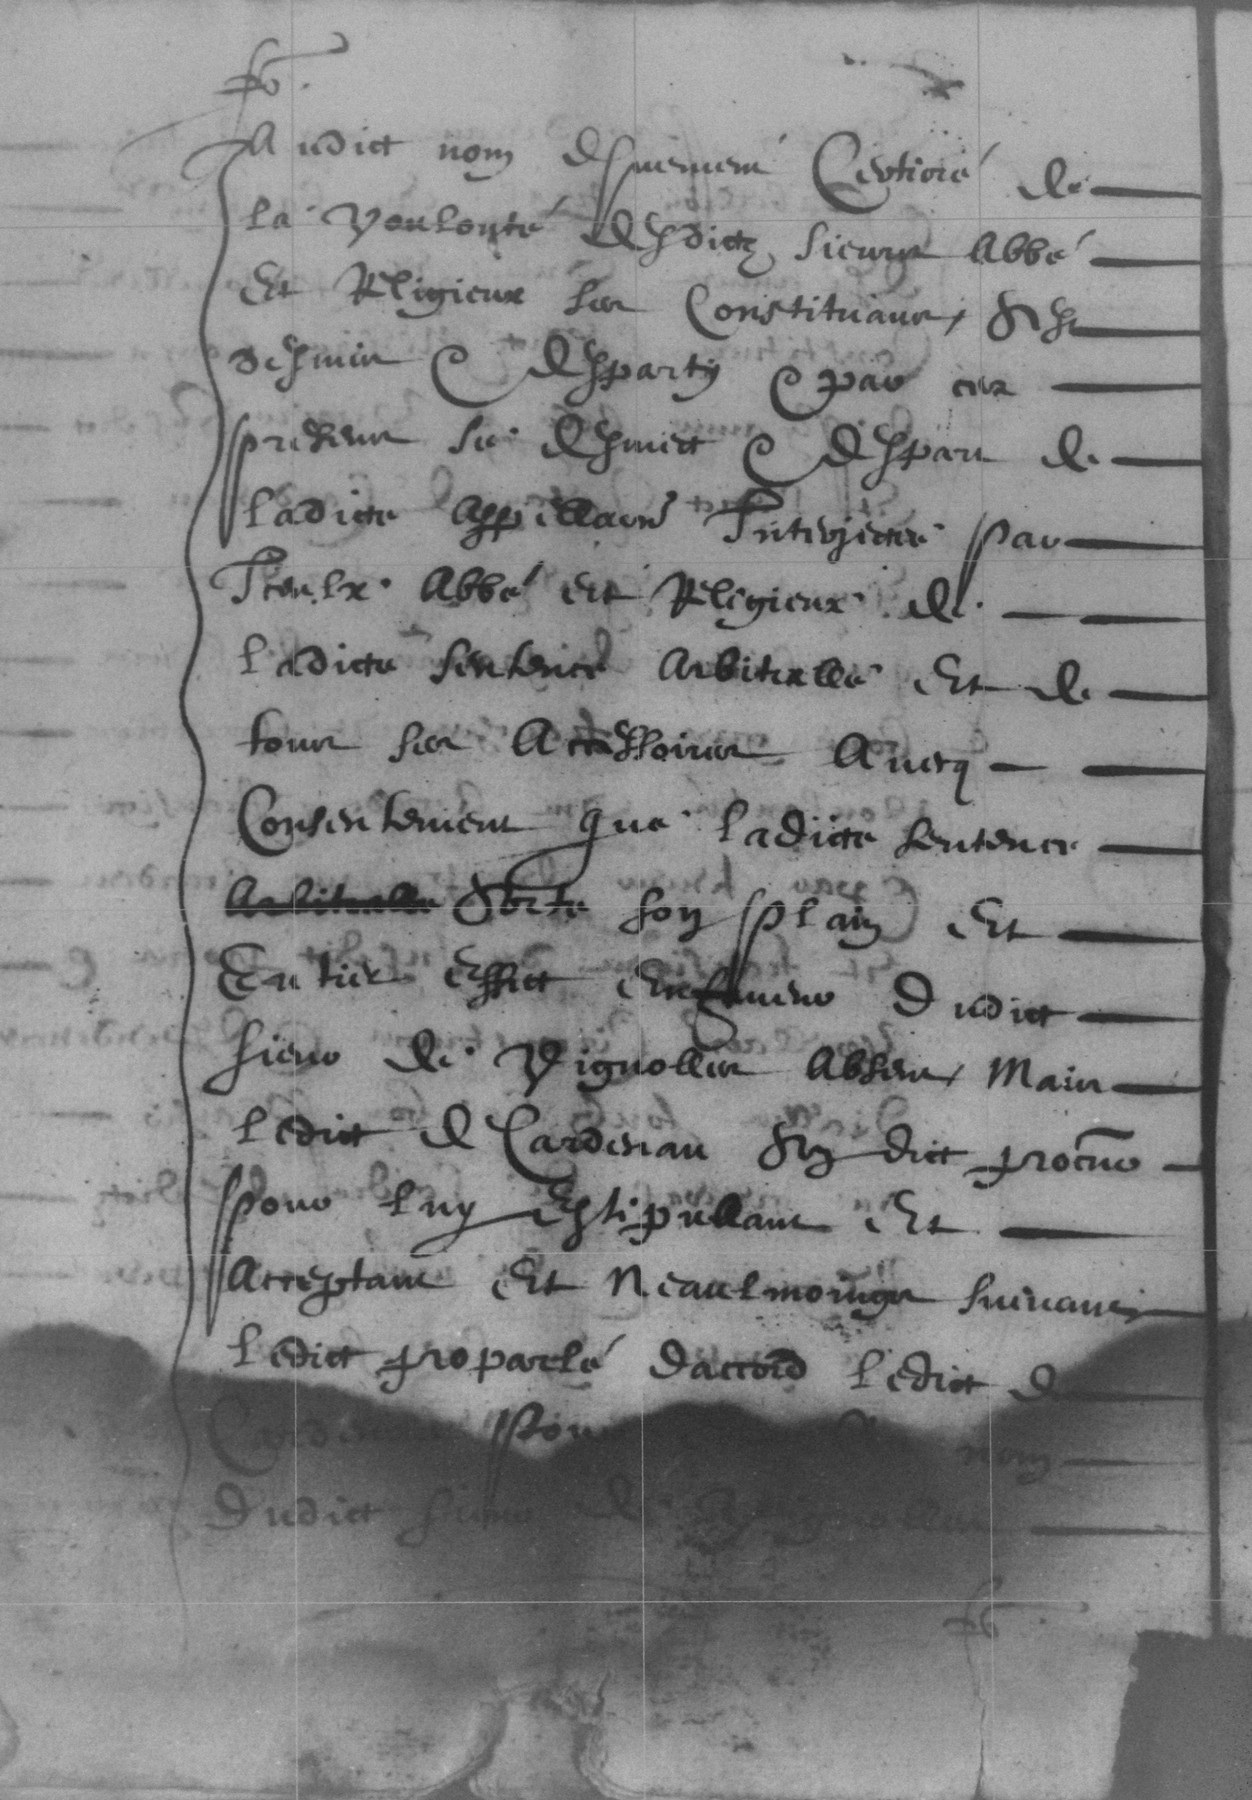 Audict nom deuement Certioré de
la voulonté desdictz sieurs Abbé
Et Religieux ses Constituans, s'est
desmis & desparty & par ces
presentes se desmect & despart de
ladicte appellaon Interjectée par
Iceulx Abbé et Religieux de
ladicte sentence Arbitralle Et de
tous ses Accessoires Avecq
Consentement que ladicte sentence
Arbitralle sorte son plain Et
Entier effect En faveur Dudict
sieur de Vignolles Absent, Mais
ledict de Cardenau sondict procur
pour luy Estipullant Et
Acceptant Et Neaulmoings suivant
ledict proparlé d'accord ledict de
Cardenau pour Au nom
Dudict sieur de Vignolles